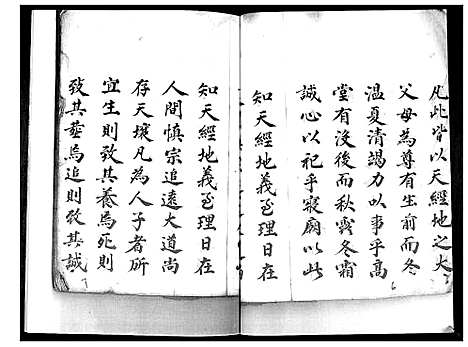 凡此皆以天經地之大
父母為尊有生前而冬
温夏清竭力以事乎高
堂有没後而秋霽冬霜
誠心以祀乎寢廟以此
知天經地義至理日在
知天經地義至理日在
人間慎宗追遠大道尚
存天壤凡為人子者所
宜生則致其養焉死則
致其葬焉追則致其誠